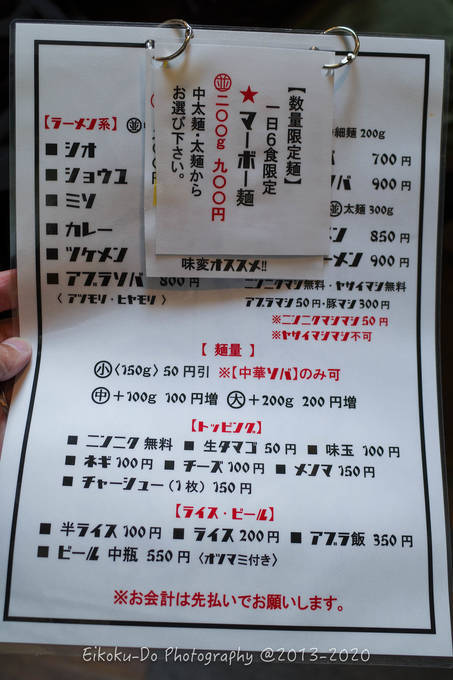 【数量限定麺】
一日6食限定
★マーボー麺
並二〇〇g 九〇〇円
中太麺・太麺から
お選び下さい。
味変オススメ!!
【ラーメン系】並
■シオ
■ショウユ
■ミソ
■カレー
■ツケメン
■アブラソバ 800円
〈アツモリ・ヒヤモリ〉
細麺 200g
700円
バ 900円
並太麺 300g
ン 850円
ーメン 900円
ニンニクマシ無料・ヤサイマシ無料
アブラマシ50円・豚マシ300円
※ニンニクマシマシ50円
※ヤサイマシマシ不可
【麺量】
小〈150g〉50円引 ※【中華ソバ】のみ可
中+100g 100円増 大+200g 200円増
【トッピング】
■ニンニク 無料 ■生タマゴ 50円 ■味玉 100円
■ネギ 100円 ■チーズ 100円 ■メンマ 150円
■チャーシュー(1枚) 150円
【ライス・ビール】
■半ライス 100円 ■ライス 200円 ■アブラ飯 350円
■ビール 中瓶 550円〈オツマミ付き〉
※お会計は先払いでお願いします。
Eikoku-Do Photography @2013-2020